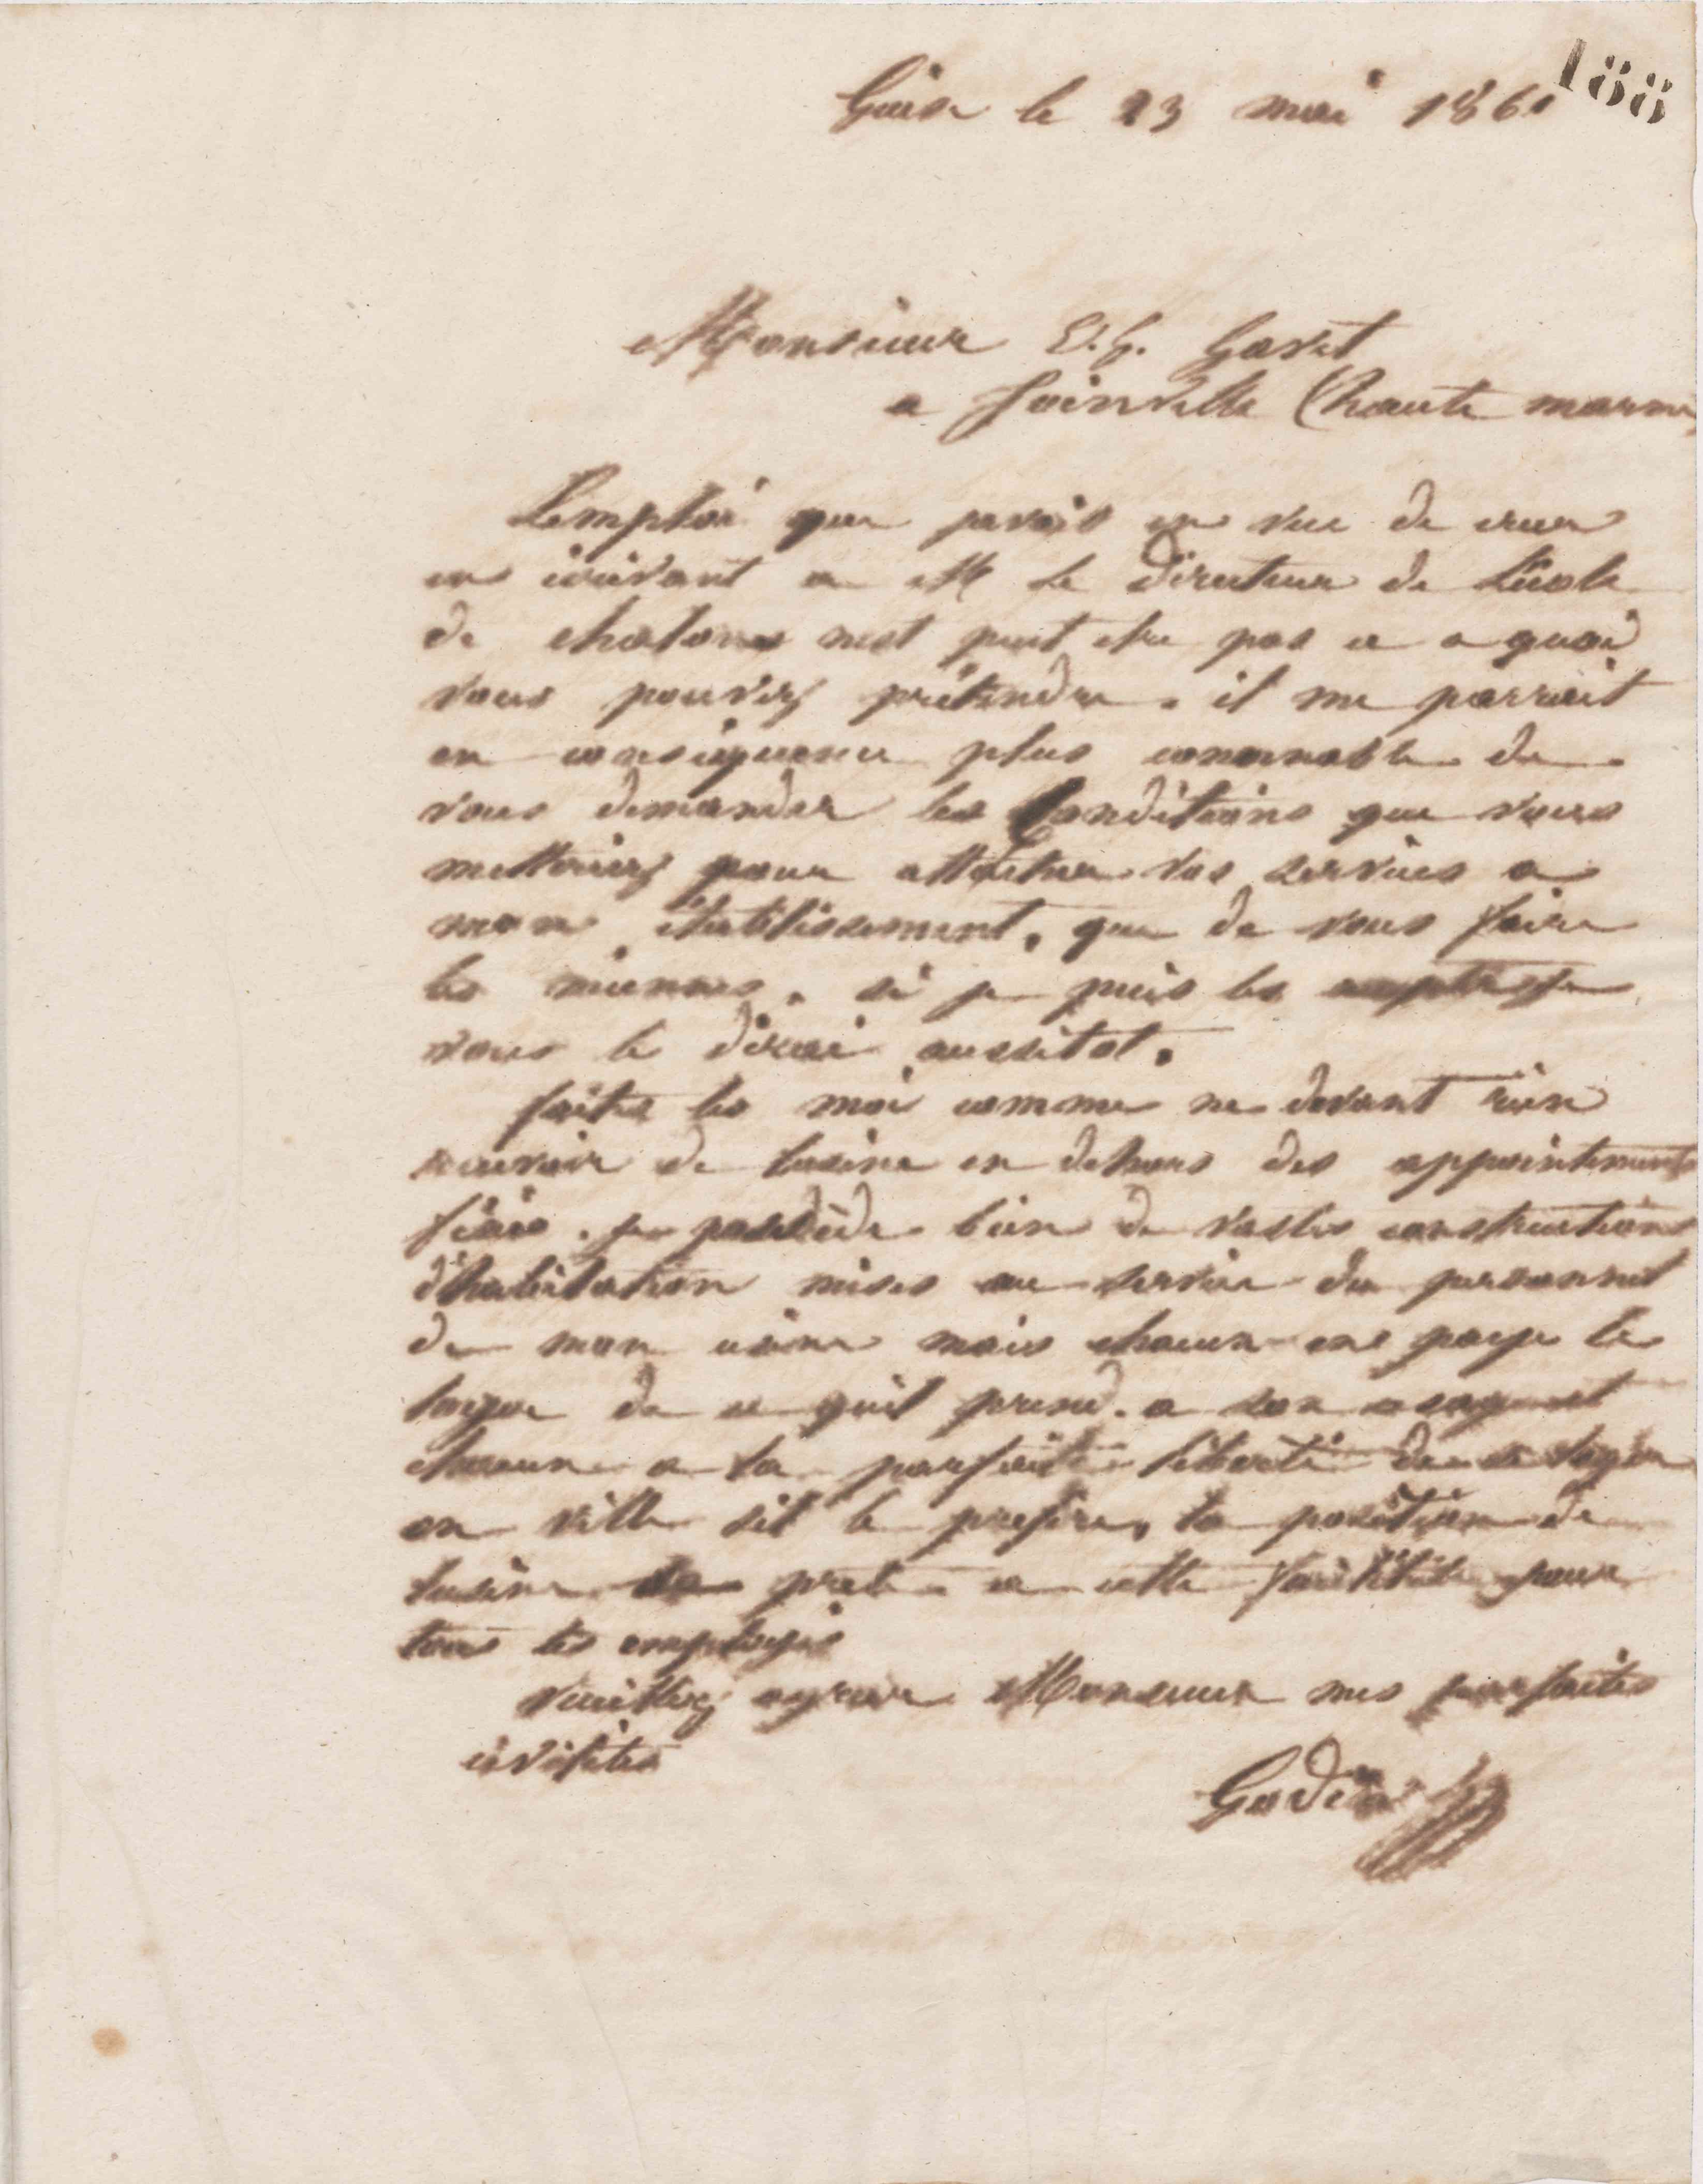 188
Guise le 23 mai 1860
Monsieur E. G. Goret
a Joinville (haute marne)
Lemploi que javais en vue de creer
en ecrivant a M le directeur de Lécole
de chalons nest peut etre pas ce a quoi
vous pouvez prétendre. il me parrait
en conséquence plus convenable de
vous demander les Conditions que vous
metteriez pour attacher vos services a
mon établissement, que de vous faire
les miennes. si je puis les accepter je
vous le dirai aussitot.
faites les moi comme ne devant rien
recevoir de lusine en dehors des appointements
fixes. je possède bien de vastes constructions
dhabitation mises au service du personnel
de mon usine mais chacun en paye le
loyer de ce quil prend a son usage et
chacun a la parfaite liberté de se loger
en ville sil le prefere, la position de
lusine se prete a cette facilité pour
tous les employés
veuillez agreer Monsieur mes parfaites
civilités
Godin